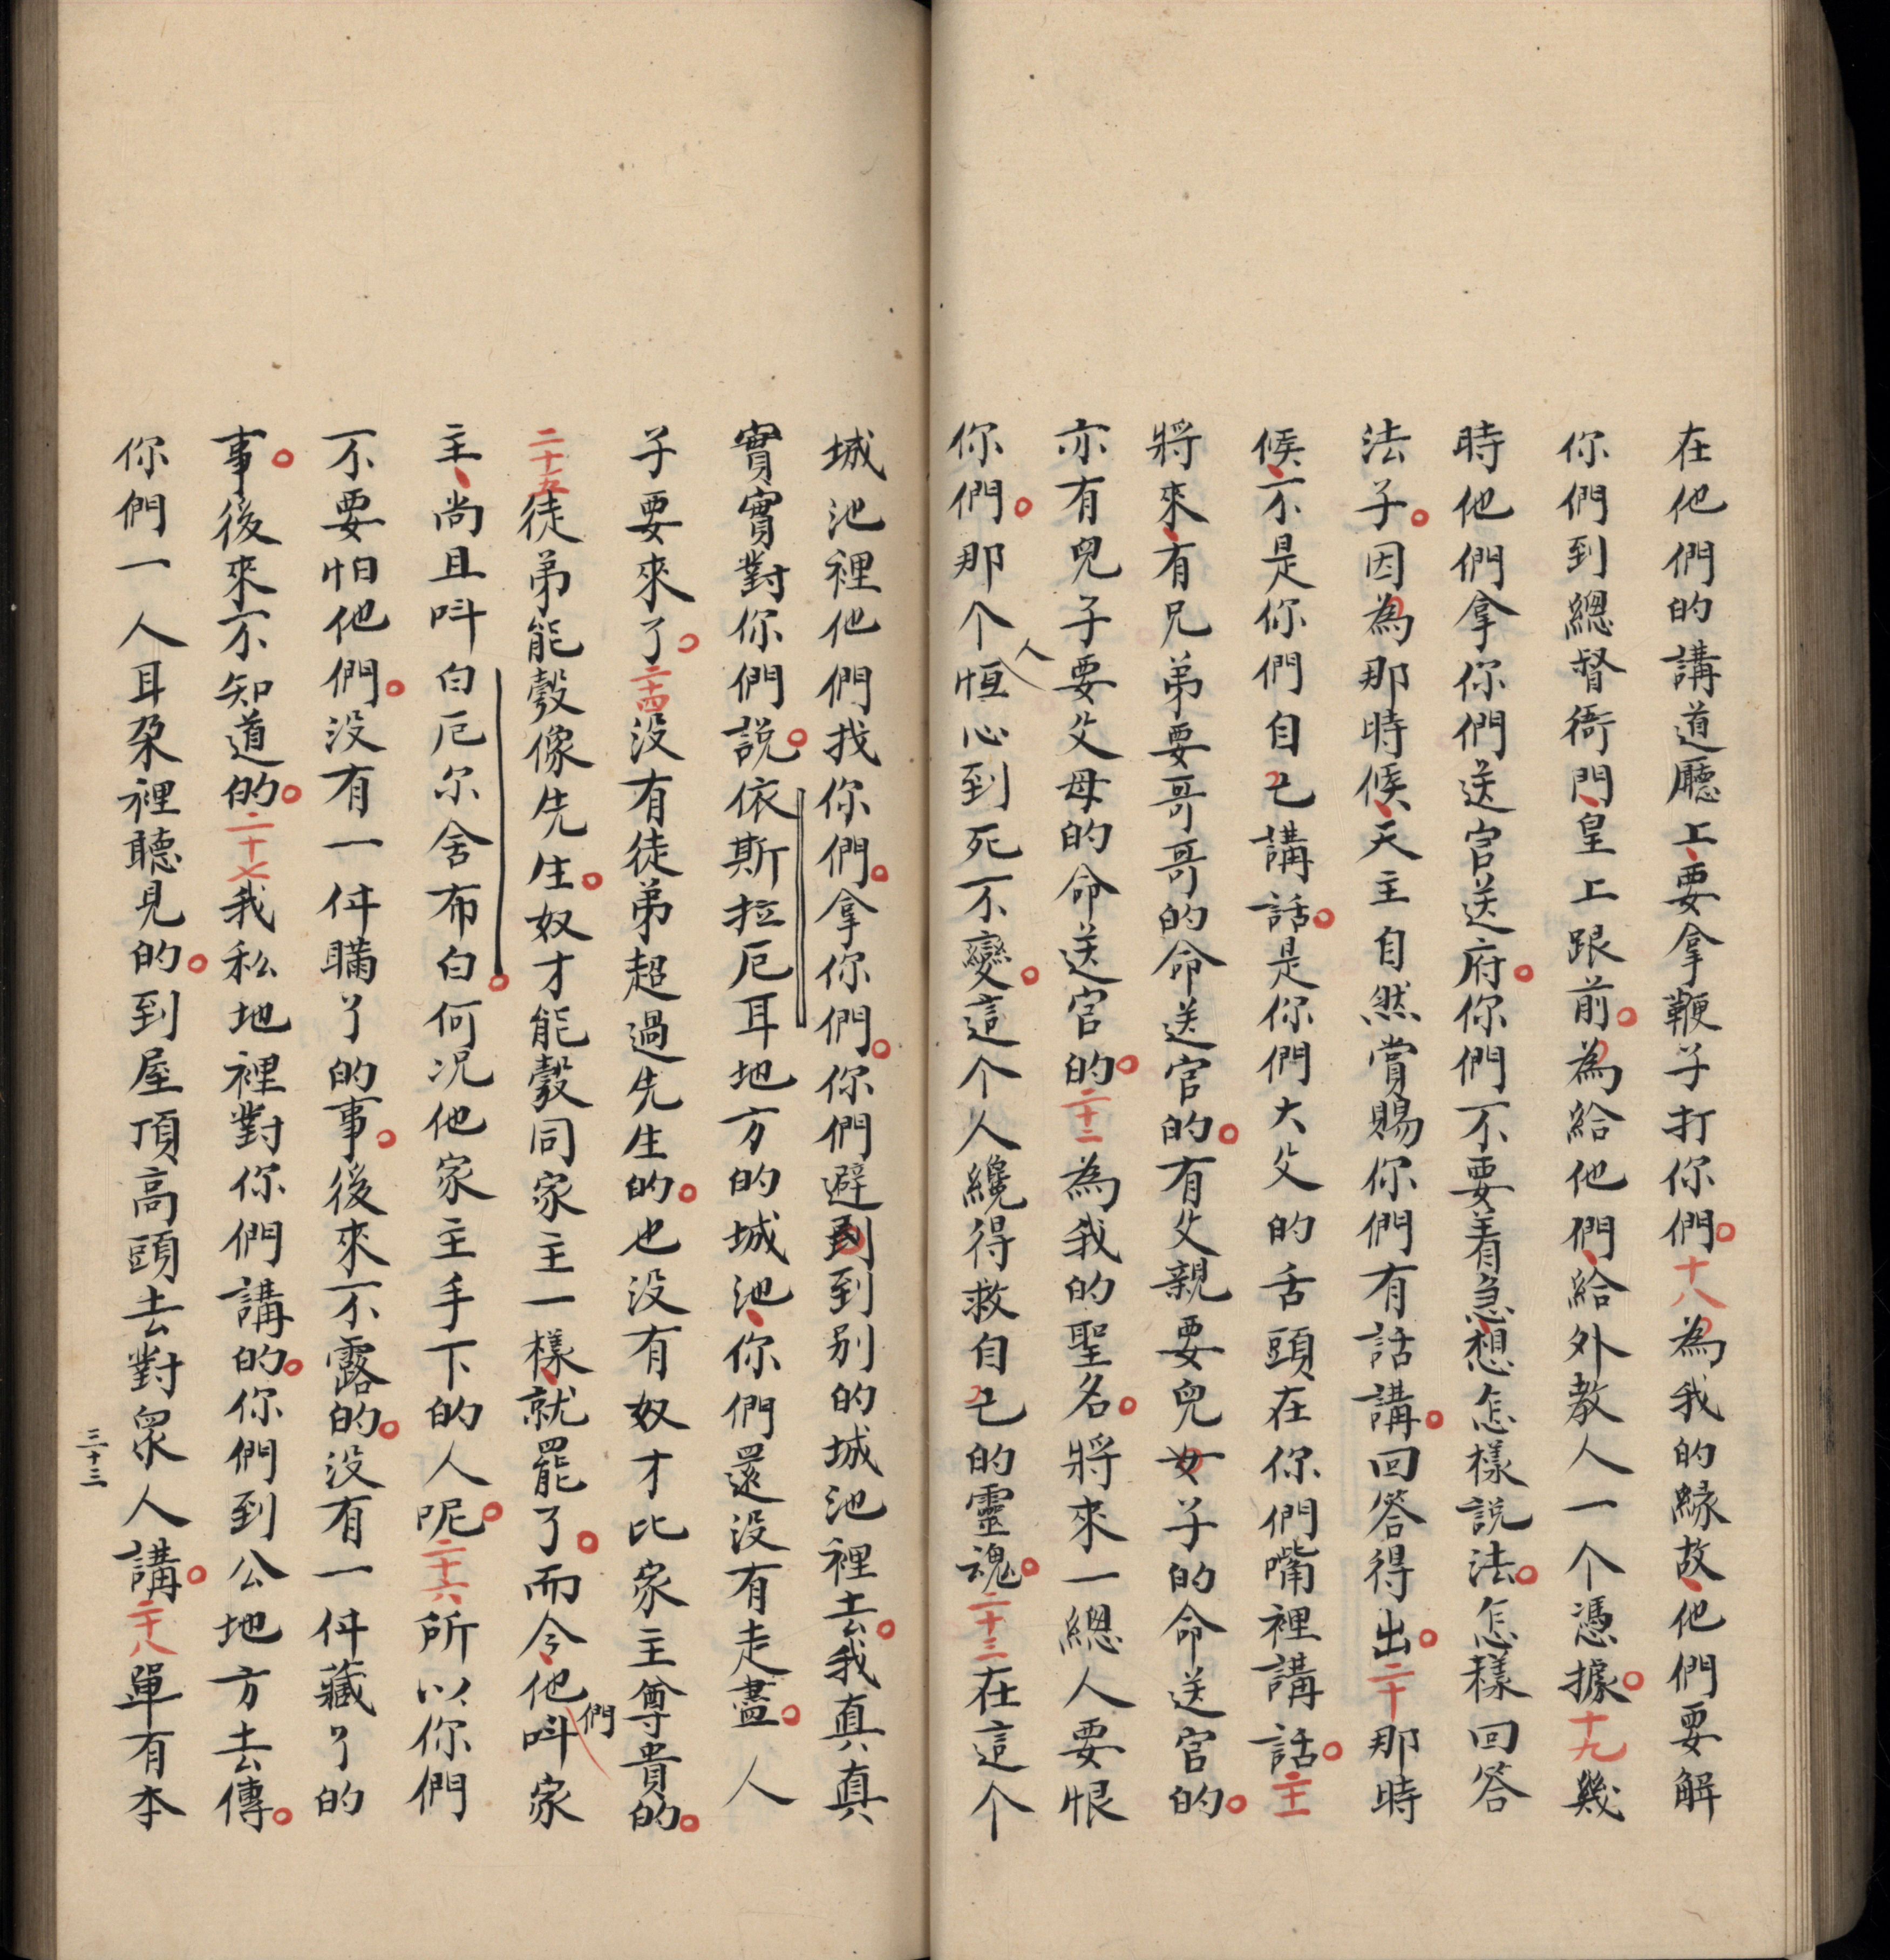 在他們的講道廳上、要拿鞭子打你們。十八為我的緣故、他們要解
你們到總督衙門、皇上跟前。為給他們、給外教人一个憑據。十九幾
時他們拿你們送官送府。你們不要着急、想怎樣說法。怎樣回答
法子。因為那時候、天主自然賞賜你們有話講。回答得出。二十那時
候、不是你們自己講話。是你們大父的舌頭在你們嘴裡講話。二十一
將來、有兄弟要哥哥的命送官的。有父親要兒女子的命送官的。
亦有兒子要父母的命送官的。二十二為我的聖名。將來一總人要恨
你們。那个人恒心到死不變。這个人纔得救自己的靈魂。二十三在這个
城池裡他們找你們。拿你們。你們避到到别的城池裡去。我真真
實實對你們說。依斯拉厄耳地方的城池、你們還没有走盡。人
子要來了。二十四没有徒弟超過先生的。也没有奴才比家主尊貴的。
二十五徒弟能彀像先生。奴才能彀同家主一樣、就罷了。而今、他們呌家
主、尚且呌白厄尔舍布白。何况他家主手下的人呢。二十六所以你們
不要怕他們。没有一件瞞了的事。後來不露的。没有一件藏了的
事。後來不知道的。二十七我私地裡對你們講的。你們到公地方去傳。
你們一人耳朶裡聽見的。到屋頂高頭去對衆人講。二十八單有本
三十三